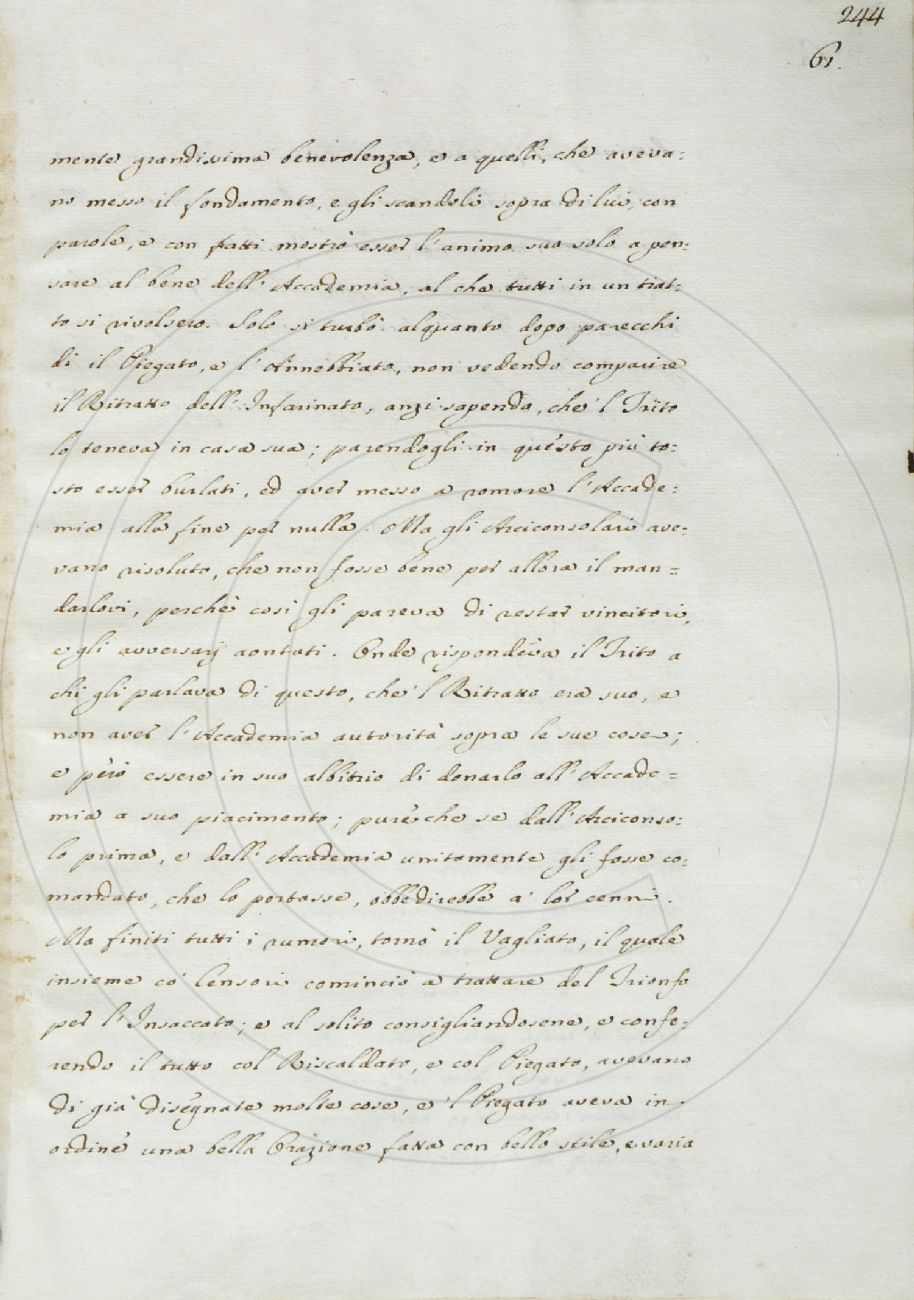 244
61.
mente grandissima benevolenza, e a quelli, che aveva:
no messo il fondamento, e gli scandoli sopra di lui, con
parole, e con fatti mostrò esser l'animo suo solo a pen:
sare al bene dell'Accademia, al che tutti in un trat:
to si rivolsero. Solo si turbò alquanto dopo parecchi
dì il Piegato, e l'Annebbiato, non vedendo comparire
il Ritratto dell'Infarinato, anzi sapendo, che'l Trito
lo teneva in casa sua; parendogli in questo più to:
sto esser burlati, ed aver messo a romore l'Accade:
mia alla fine per nulla. Ma gli Arciconsolari ave:
vano risoluto, che non fosse bene per allora il man=
darlovi, perchè così gli pareva di restar vincitori,
e gli avversarij aontati. Onde rispondeva il Trito a
chi gli parlava di questo, che'l Ritratto era suo, e
non aver l'Accademia autorità sopra le sue cose;
e però essere in suo albitrio di donarlo all'Accade=
mia a suo piacimento; pure che se dall'Arciconso:
lo prima, e dall'Accademia unitamente gli fosse co:
mandato, che lo portasse, obbedirebbe a' lor cenni.
Ma finiti tutti i rumori, tornò il Vagliato, il quale
insieme co' Censori cominciò a trattare del Trionfo
per l'Insaccato; e al solito consigliandosene, e confe:
rendo il tutto col Riscaldato, e col Piegato, avevano
di già disegnate molte cose, e 'l Piegato aveva in
ordine una bella Orazione fatta con bello stile, e varia